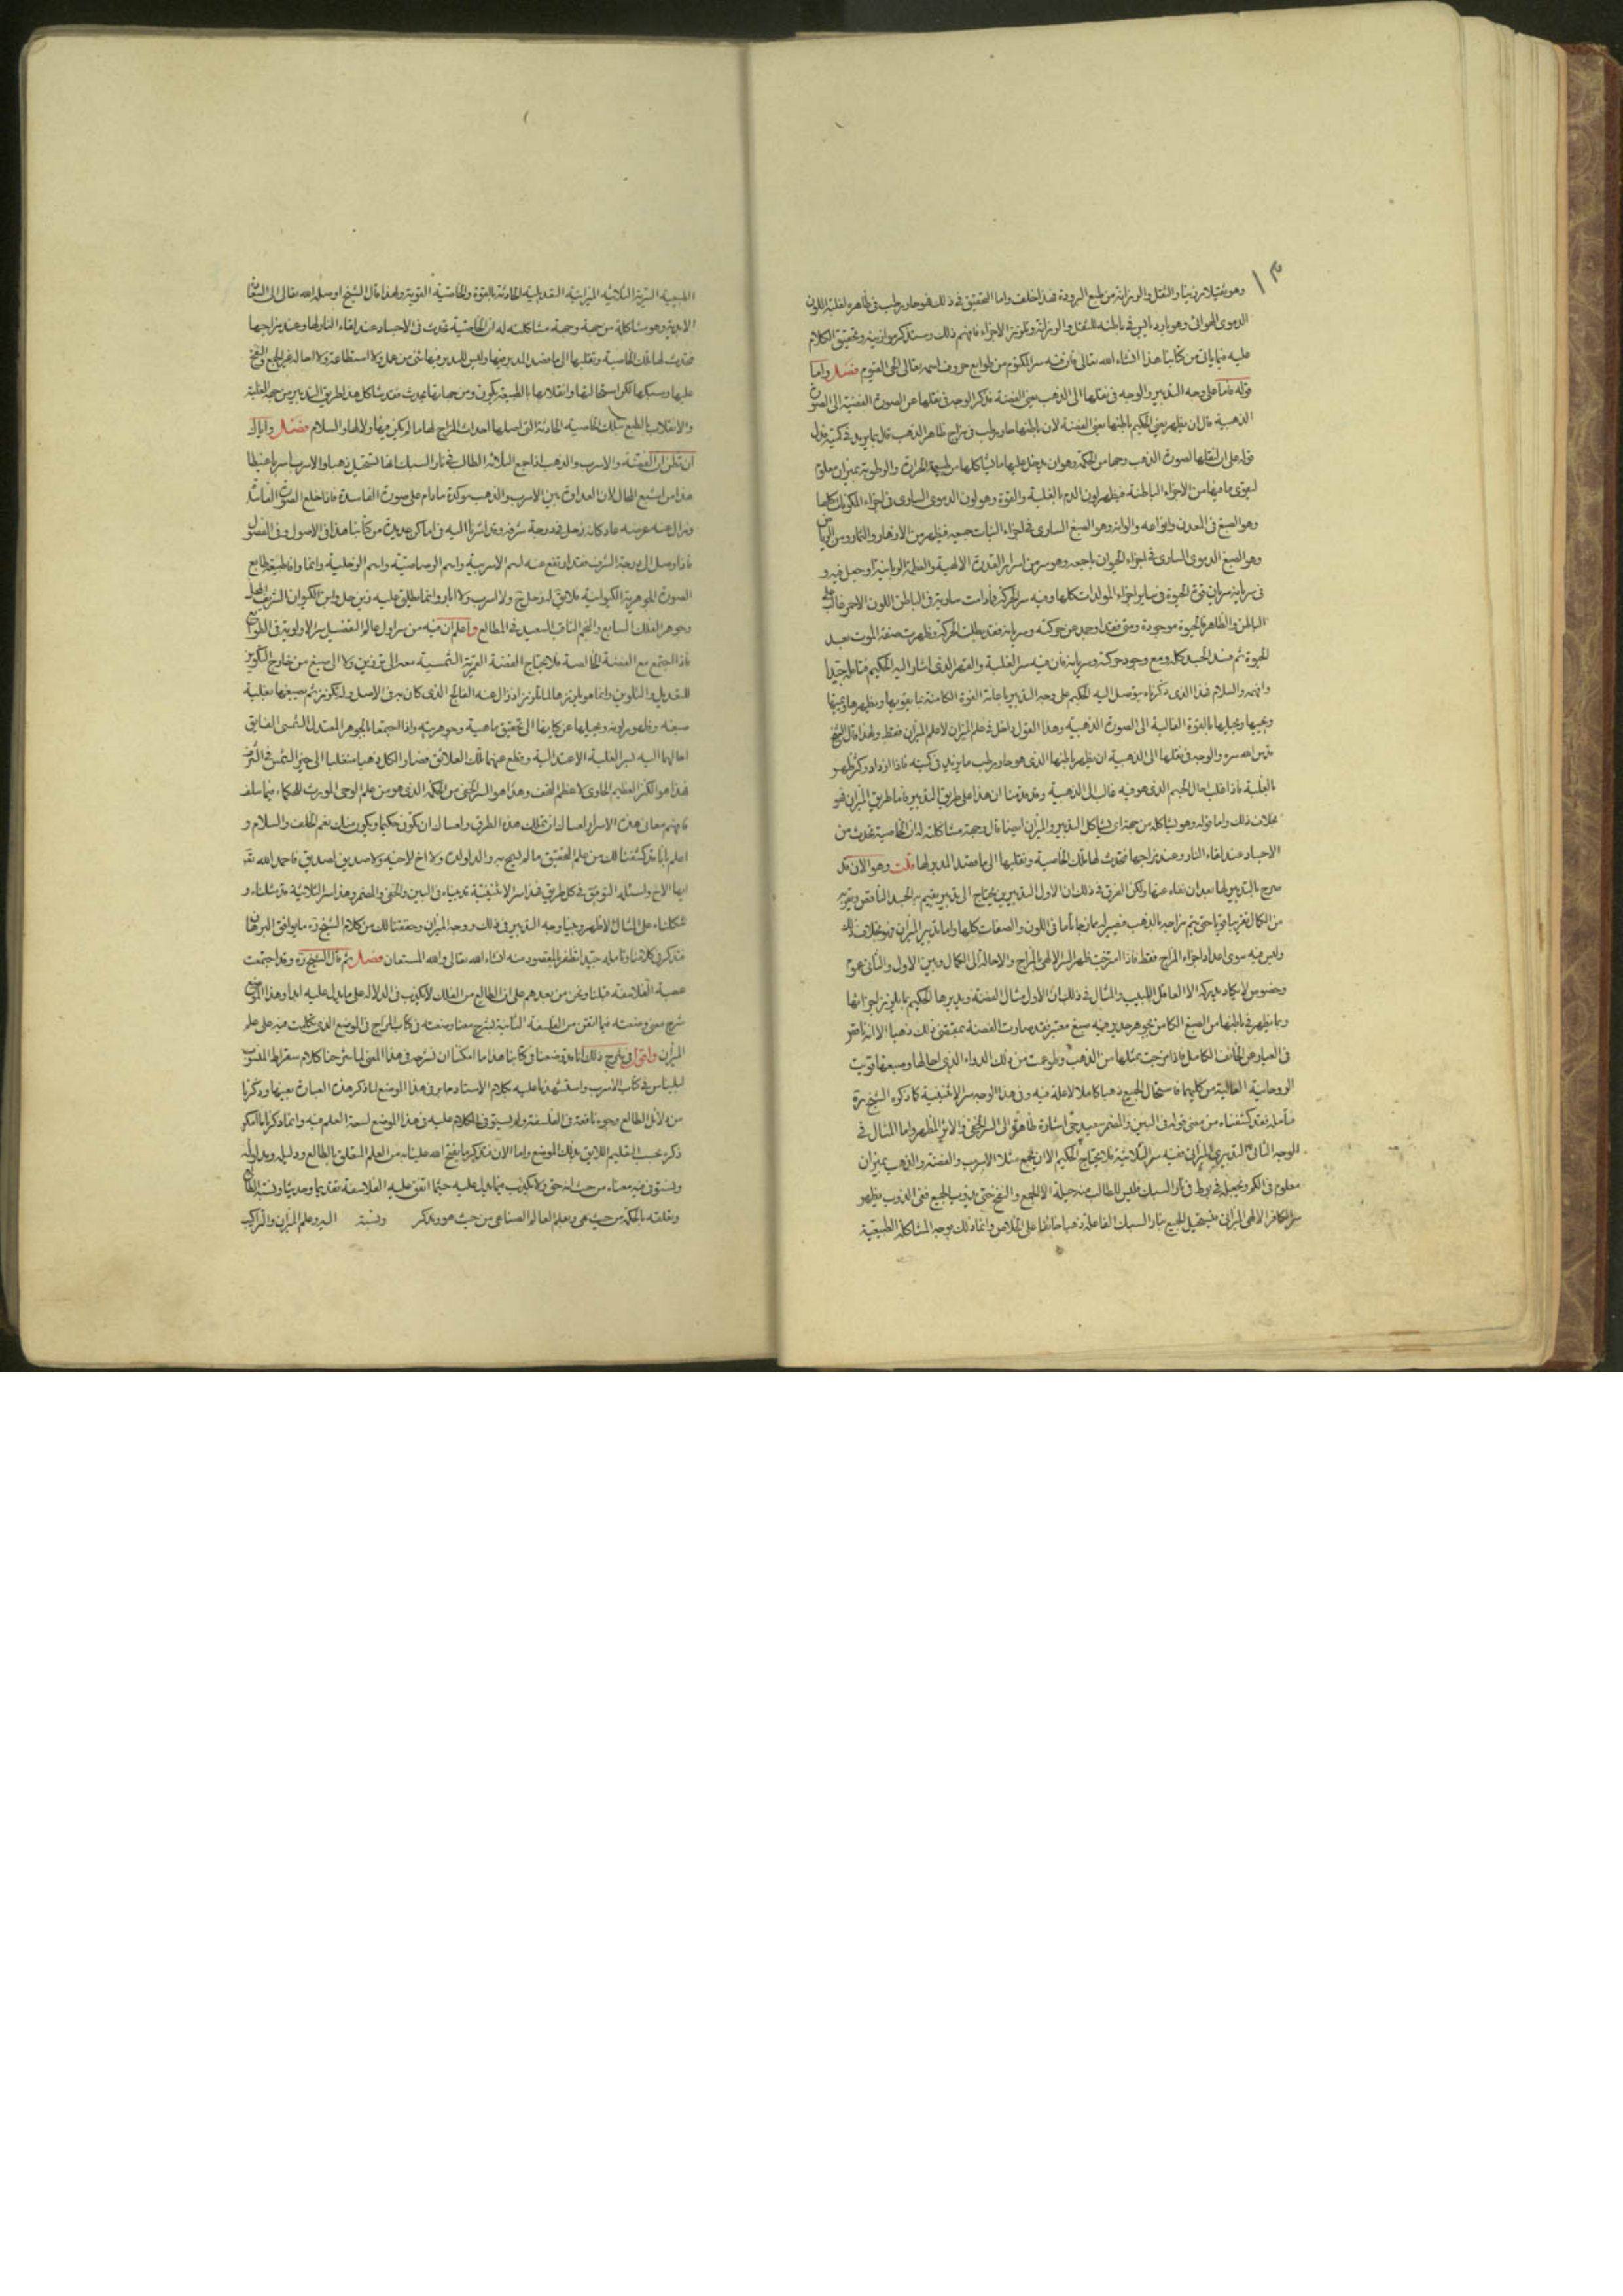 ١٣
وهو ثقيل رزين والثقل والرزانة من طبع البرودة هذا خلف واما التحقيق في ذلك فهو حار رطب في ظاهره لغلبة اللون
الدموي الهوائي وهو بارد يابس في باطنه للثقل والرزانة وتلزيز الاجزاء فافهم ذلك وسنذكر موازينه وتحقيق الكلام
عليه فيما ياتي من كتابنا هذا انشاء الله تعالى فان فيه سر المكتوم من طوابع حروف اسمه تعالى الحي القيوم فصل واما
قوله فاما على وجه التدبير والوجه في نقلها الى الذهب يعني الفضة فذكر الوجه في نقلها عن الصورة الفضية الى الصورة
الذهبية قال ان يظهر يعني الحكيم باطنها يعني الفضة لان باطنها حار رطب في مزاج ظاهر الذهب قال بما يزيد في كميته فدل
قوله على ان نقلها لصورة الذهب وجها من الحكمة وهو ان يدخل عليها ما يشاكلها من طبيعة الحرارة والرطوبة بميزان معلوم
ليقوى ما فيها من الاجزاء الباطنة فيظهر لون الدم بالغلبة والقوة وهو لون الدموي الساري في اجزاء المكونات كلها
وهو الصبغ في المعدن وانواعه والوانه وهو الصبغ الساري في اجزاء النبات جميعه فيظهر من الازهار والثمار ومن الرياض
وهو الصبغ الدموي الساري في اجزاء الحيوان باجمعه وهو سر من اسرار القدرة الالهية والعظمة الربانية اوجل فيه و
في سريانه سريان قوة الحيوة في ساير اجزاء المولدات كلها وفيه سر الحركة فما دامت سارية في الباطن اللون الاحمر غالب على
الباطن والظاهر فالحيوة موجودة ومتى فقد اوجد عن حركته وسريانه فقد بطلت الحركة وظهرت صفة الموت بعد
الحيوة ثم فسد الجسد كله ومع وجود حركته وسريانه فان فيه سر الغلبة والقهر الذي اشار اليه الحكيم فتامله جيدا
وافهمه والسلام فهذا الذي ذكرناه يتوصل اليه الحكيم على وجه التدبير باعانة القوة الكامنة بما يقويها ويظهرها ويميتها
ويحييها ويحيلها بالقوة الغالبة الى الصورة الذهبية وهذا القول داخل في علم الميزان لا علم الميزان فقط ولهذا قال الشيخ
قدس الله سره والوجه في نقلها الى الذهبية ان يظهر باطنها الذي هو حار رطب ما يزيد في كميته فاذا ازداد وكثر ظهر
بالغلبة فاذا غلب احال الجسم الذي هو فيه غالب الى الذهبية وقد قدمنا ان هذا على طريق التدبير فاما طريق الميزان فهو
بخلاف ذلك واما قوله وهو يشاكله من جهة اي يشاكل التدبير والميزان ايضا قال وجهة مشاكلته له ان الخاصية تحدث من
الاجساد عند لقاء النار وعند مزاجها فتحدث لها تلك الخاصية ونقلبها الى ما قصد المدبر لها قلت وهو الان قد
صرح بالتدبير لها بعد ان نفاه عنها ولكن الفرق في ذلك ان الاول التدبيرين يحتاج الى تدبير يقيم به الجسد الناقص ويقربه
من الكمال تقريبا قويا حتى يتم مزاجه بالذهب فيصير له ممازجا تاما في اللون والصفات كلها واما تدبير الميزان فهو بخلاف ذلك
وليس فيه سوى اعداد اجزاء المزاج فقط فاذا امتزجت ظهر السر الالهي المزاج والاحالة الى الكمال وبين الاول والثاني عموم
وخصوص لا يكاد يدركه الا العاقل اللبيب والمثال في ذلك بان الاول مثال الفضة ويدبرها الحكيم بما يلزيز اجزائها
وبما يظهر في باطنها من الصبغ الكامن بجوهر جديد فيه صبغ معتبر فقد صارت الفضة بمقتضى ذلك ذهبا الا انه ناقص
في العيار عن الخالف الكامل فاذا مزجت بمثلها من الذهب وطوعت من ذلك الدواء الذي احالها وصبغها قويت
الروحانية الغالبة من كليهما فاستحال الجميع ذهبا كاملا لا علة فيه وفي هذا الوجه سر الاثنينية كما ذكره الشيخ سره
فتامله فقد كشفناه من معنى قوله في السر والمضمر بعبد حتى اشارة ظاهرة الى السر الخفي والامر المظهر واما المثال في
الوجه الثاني التدبيري الميزاني ففيه سر الثلاثية فلا يحتاج الحكيم الا ان يجمع مثلا الاسرب والفضة والذهب بميزان
معلوم في الكم ويجعله في بوط في نار السبك فليس للطالب فيه حيلة الا الجمع والنفخ حتى يذوب الجميع ففي الذوب يظهر
سر الكافر الالهي الميزاني فيستحيل الجميع بنار السبك الفاعلة ذهبا خالصا على الخلاص وانما ذلك بوجه المشاكلة الطبيعية
الطبيعية السرية الثلاثية الميزانية التعديلية الحادثة بالقوة والخاصية القوية ولهذا قال الشيخ اوصله الله تعالى الى السعادة
الابدية وهو مشاكلة من جهة وجهة مشاكلته له ان الخاصية تحدث في الاجساد عند لقاء النار لها وعند مزاجها
فتحدث لها تلك الخاصية ونقلبها الى ما قصد المدبر فيها وليس للمدبر فيها شئ من عمل ولا استطاعة ولا احالة غير الجمع والنفخ
عليها وسبكها لكن استحالتها وانقلابها بالطبيعة يكون ومن جهاتها يحدث فقد شاكل هذا طريق التدبير من جهة الغلبة
والانقلاب بالطبع بتلك الخاصية الحادثة التي اصلها احداث المزاج لها ما لم يكن فيها ولا لها والسلام فصل واياك
ان تظن ان الفضة والاسرب والذهب اذا جمع الثلاثة الطالب في نار السبك انها تستحيل ذهبا والاسرب اسربا غبيطا
هذا من اشنع المحال لان العداوة بين الاسرب والذهب موكدة ما دام على صورته الفاسدة فاذا خلع الصورة الفاسدة
وزال عنه عرضه عاد كانه زحل في درجة شرفه وقد اشرنا اليه في اماكن عديدة من كتابنا هذا في الاصول وفي الفصول
فاذا وصل الى درجة الشرف فقد ارتفع عنه اسم الاسربية واسم الرصاصية واسم الزحلية وانما وافا طبيعة طابع
الصورة الجوهرية الكيوانية فلا يقال له زحل ولا اسرب ولا ابار وانما يطلق عليه زين حل وابن الكيوان الشرف المحلى
وجوهر الفلك السابع والنجم الثاقب السعيد في المطالع واعلم ان فيه من سر اول عالم التفضيل سر الاولوية في الطوابع
فاذا اجتمع مع الفضة الخالصة فلا يحتاج الفضة القمرية الشمسية معه الى تزيين ولا الى صبغ من خارج التكوين
للتعديل والتلوين وانما هو يلزيزها لما لم تزاد زال عنه الفالج الذي كان به في الاصل ولم يكن ثم يصبغها بغلبة
صبغه وظهور لونه ويحيلها عن كيانها الى تحقيق ماهيته وجوهريته واذا اجتمعا بالجوهر المعتدل الشمسي الفايق
احالهما اليه بسر الغلبة الاعتدالية وقطع عنهما تلك العلائق فصار الكل ذهبا منقلبا الى حيز الشمس في الشرف
فهذا هو الكنز العظيم الحاوي لاعظم التحف وهذا هو السر الخفي من الحكمة الذي هو من علم الوحي الموروث للحكماء فيما سلف
فافهم معاني هذه الاسرار لعساك ان تملك هذه الطرق ولعساك ان تكون حكيما ويكون منك نعم الخلف والسلام و
اعلم بانا قد كشفنا لك من علم التحقيق ما لم يبح به والد لولده ولا اخ لاخيه ولا صديق لصديق فاحمد الله تعالى
ايها الاخ واسئله التوفيق في كل طريق فهذا سر الاثنينية قد بيناه في السر والخفي والمضمر وهذا سر الثلاثية قد مثلناه و
شكلناه على المثال الاظهر وبينا وجه التدبير في ذلك ووجه الميزان وحققنا لك من كلام الشيخ ره ما يوافق البرهان
فتدبر في كلامنا وتامله جيدا تظفر بالمقصود منه انشاء الله تعالى والله المستعان فصل ثم قال الشيخ ره وقد اجتمعت
عصبة الفلاسفة قبلنا ونحن من بعدهم على ان الطالع من الفلك لا يكذب في الدلالة على ما يدل عليه ابدا وهذا الموضع
شرح معنى وضعته فيما اتقن من الفلسفة الثانية بشرح معناه وضعته في كتاب المزاج في الوضع الذي تكلمت فيه على علم
الميزان واقول في شرح ذلك انا قد وضعنا في كتابنا هذا ما امكننا ان نشرحه في هذا المعنى لما شرحنا كلام سقراط المنسوب
لبليناس في كتاب الاسرب واستشهدنا عليه بكلام الاستاد جابر في هذا الموضع لما ذكر هذه العبارة بعينها وذكرنا
من دلائل الطالع وجوه نافعة في الفلسفة ولم يسبق في الكلام عليه في هذا الموضع لسعة العلم فيه وانما ذكرنا ما امكن
ذكره بحسب التقديم اللايق بذلك الموضع واما الان فنذكر ما يفتح الله علينا به من العلم المتعلق بالطالع ودليله ومدلوله
ونستوفي فيه معناه من حيث انه حق ولا يكذب فيما يدل عليه حيثما اتفق عليه الفلاسفة تقديما وحديثا ونسبة الطالع
وتعلقه بالحكمة من حيث هي وبعلم العالم الصناعي من حيث هو ونذكر ونسبة اليه وعلم الميزان والتراكيب